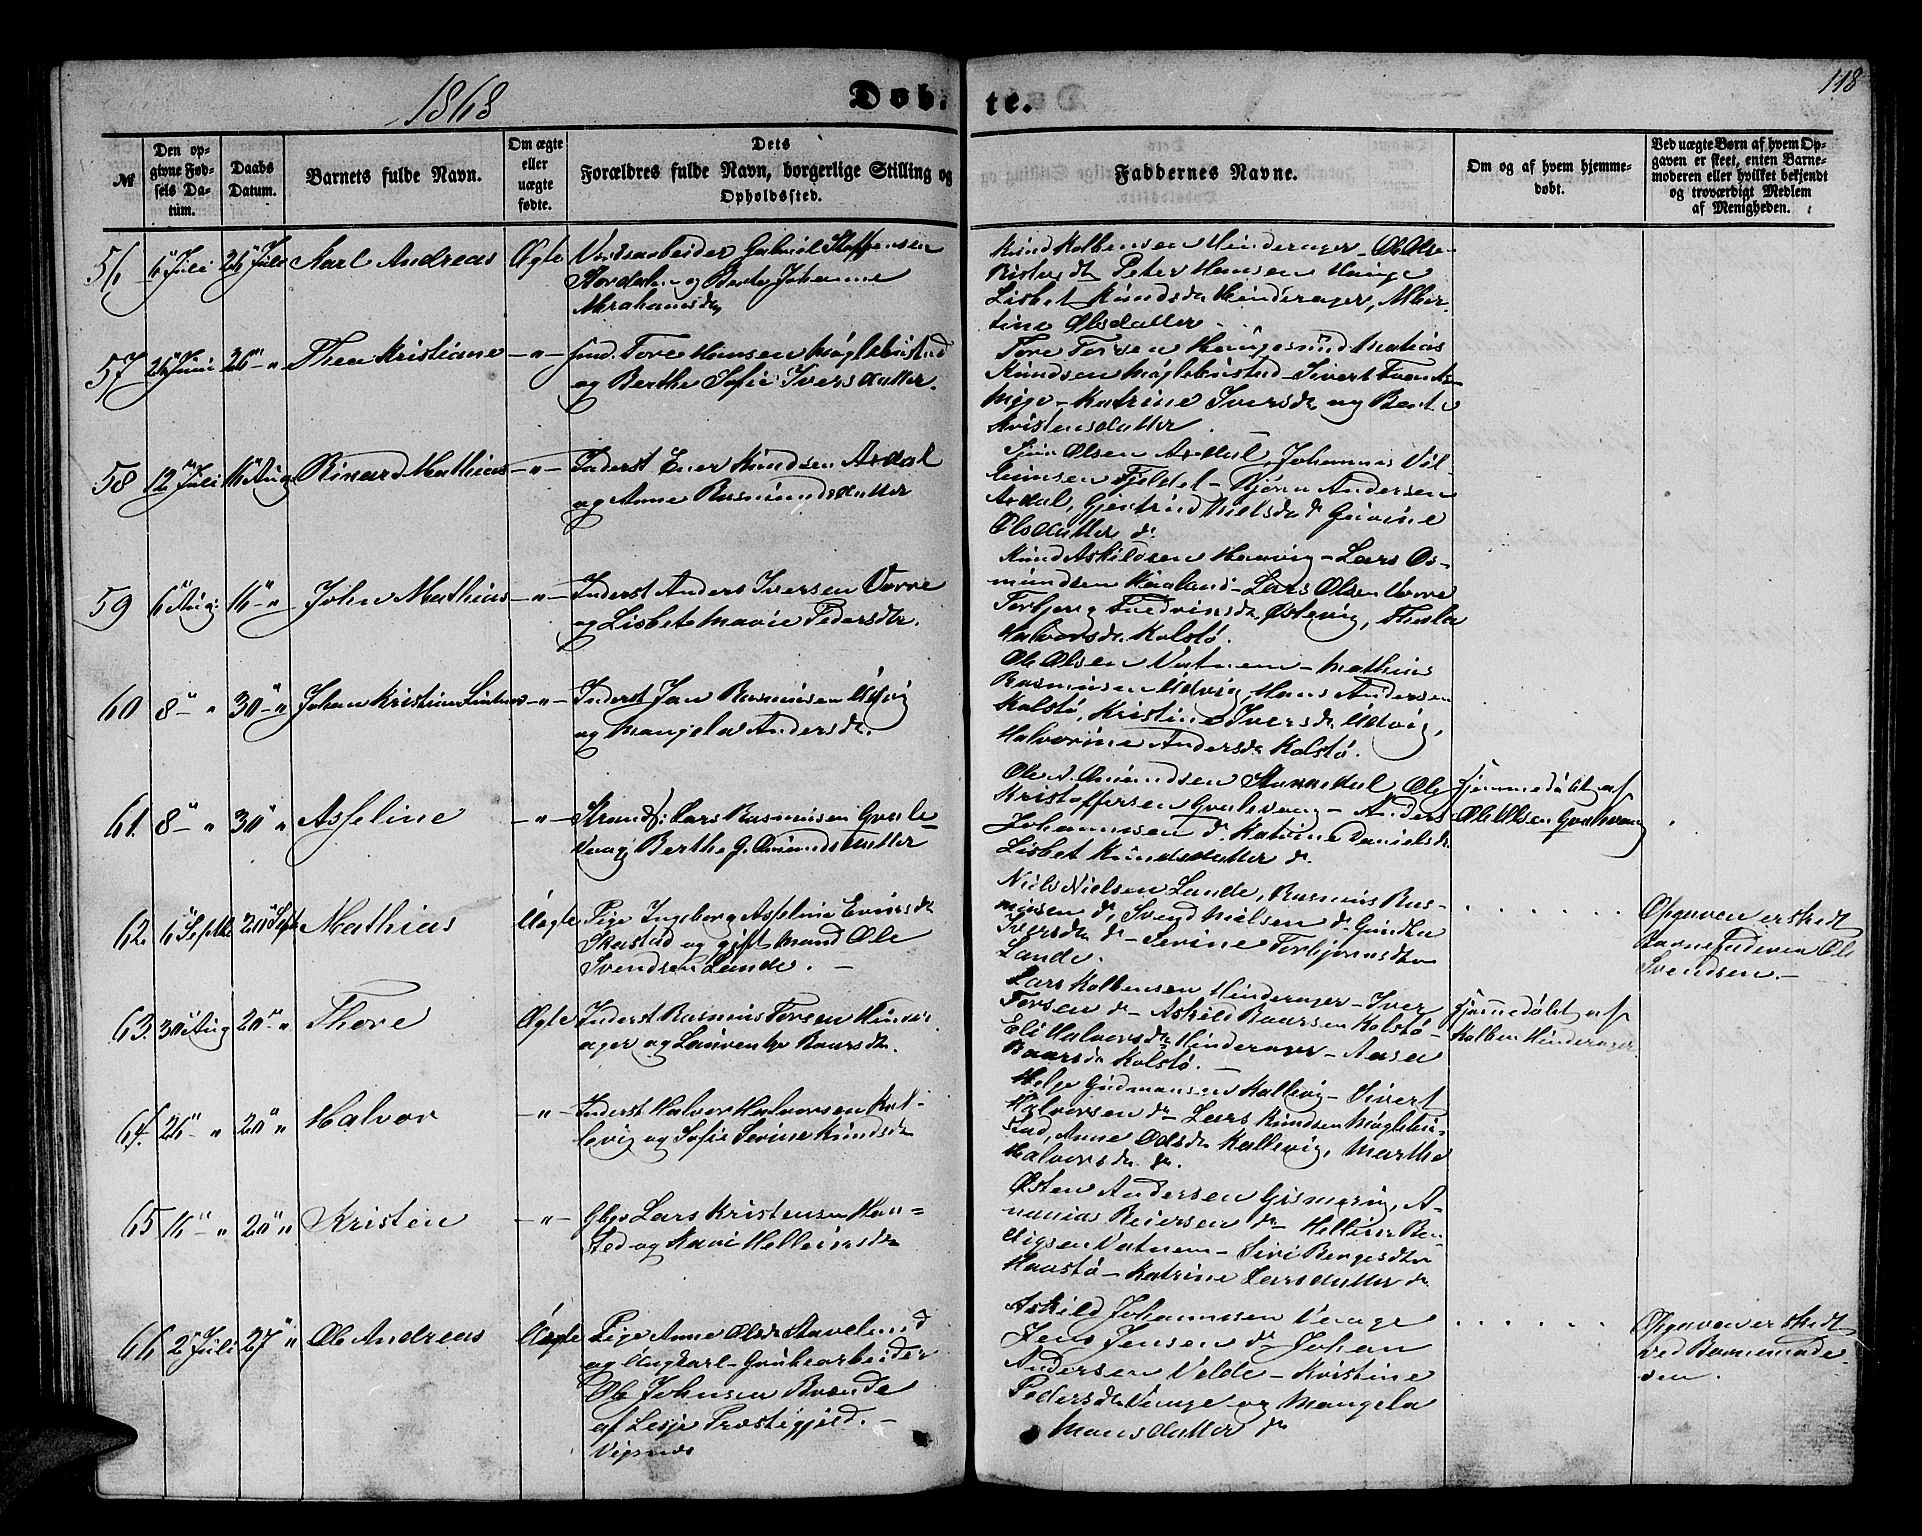 1868
Døb-
te.
118
№
Den op-
givne Fød-
sels Da-
tum.
Daabs
Datum.
Barnets fulde Navn.
Om ægte
eller
uægte
fødte.
Dets
Forældres fulde Navn, borgerlige Stilling og
Opholdssted.
Faddernes Navne.
Om og af hvem hjemme-
døbt.
Ved uægte Børn af hvem Op-
gaven er skeet, enten Barne-
moderen eller hvilket bekjendt
og troværdigt Medlem
af Menigheden.
56 6 Juli 26 Juli Karl Andreas Ægte
Gabriel Staffensen
Stordalen og Berte Johanne
Abrahamsdr
Knud Kolbensen Hinderager - Ole Olse
Peter Hansen Hauge
Lisbet Knudsdr Hinderager, Alber-
tine Olsdatter
57 Juni 26 " Thea Kristiane - " -
Tore Hansen Møglebustad
og Berthe Sofie Iversdatter.
Tore Torsen Haugesund Matias
Knudsen Møglebustad - Sivert
- Katrine Iversdr og Berte
Kristensdatter
58 12 Juli 16 Aug Rinard Mathias - " -
Inderst Ener Knudsen Ardal
og Anne Rasmundsdatter
Olsen Ardal, Johannes Vil-
lumsen Fjeldet - Bjørn Andersen
Ardal, Gjertrud Nielsdr do Gurine
Olsdatter do
59 6 Aug: 16 - " John Mathias - " -
Inderst Anders Iversen Vorre
og Lisbet Marie Pedersdtr.
Knud Askildsen Hervig - Lars Os-
mundsen Haaland - Lars Olsen Vorre
Torbjørg Østevig, Thesla
Halvorsdr Kolstø.
60 8 - " 30 - " Johan Kristian - " -
Inderst Jan Rasmusen Udvig
og Mangela Andersdr.
Ole Olsen Vatnem - Mathias
Rasmusen Udvig Hans Andersen
Kolstø, Kristine Iversdr Udvig,
Halvorine Andersdr Kolstø.
61. 8 - " 30 " Asseline - " -
Strands: Lars Rasmusen Gonle-
Vaag Berthe G. Omundsdatter
Ole A. Omundsen Stakkedal Ole
Kristoffersen - Anders
Johannesen do Katrine Danielsdr
Lisbet Knudsdatter do
Hjemmedøbt af
Ole Olsen
62. 6 Septbr 20 Sept Mathias Uægte
Pige Ingeborg Asseline Enersdr
Skastad og gift Mand Ole
Svendsen Lande. -
Niels Nielsen Lande, Rasmus Ras-
musen do, Svend Nielsen do Gundla
Iversdr do - Serine Torbjørnsdtr
Lande.
Opgaven er skedt
Barnefaderen Ole
Svendsen. -
63. 30 Aug 20 " Thore Ægte
Inderst Rasmus Torsen Hinder-
ager og Laurentse Baarsdr.
Lars Kolbensen Hinderager - Iver
Torsen do - Askild Baarsen Kolstø -
Eli Halvorsdr Hinderager - Aasa
Baarsdr Kolstø. -
Hjemmedøbt af
Kolben Hinderager
64. 26 - " 20 " Halvor - " -
Inderst Halvor Halvorsen Kal-
levig og Sofie Serine Knudsdr
Helge Gudmansen Kallevig - Sivert
Halvorsen do - Lars Knudsen Møglebu-
stad, Anne Olsdr Kallevig, Marthe
Halvorsdr do.
65 16 - " 20 " Kristen - " -
Gbr Lars Kristensen Han-
sted og Kari Helleiesdr
Østen Andersen Gismervig, A-
nanias Reiersen do Helliese Ben-
digsen Vatnem - Siri Bergesdtr
Haastø - Katrine Larsdatter do
66 25 Juli 27 " Ole Andreas Uægte
Pige Anne Olsdr Stavelund
og Ungkarl - Grubearbeider
Ole Johnsen Brænde
af Lesje Præstegjeld. -
Vigsnes
Askild Johannesen Veage
Jens Jensen do Johan
Andersen Velde - Kristine
Pedersdr Veage og Mangela
Mansdatter do
Opgaven er skedt
ved Barnemode-
ren.